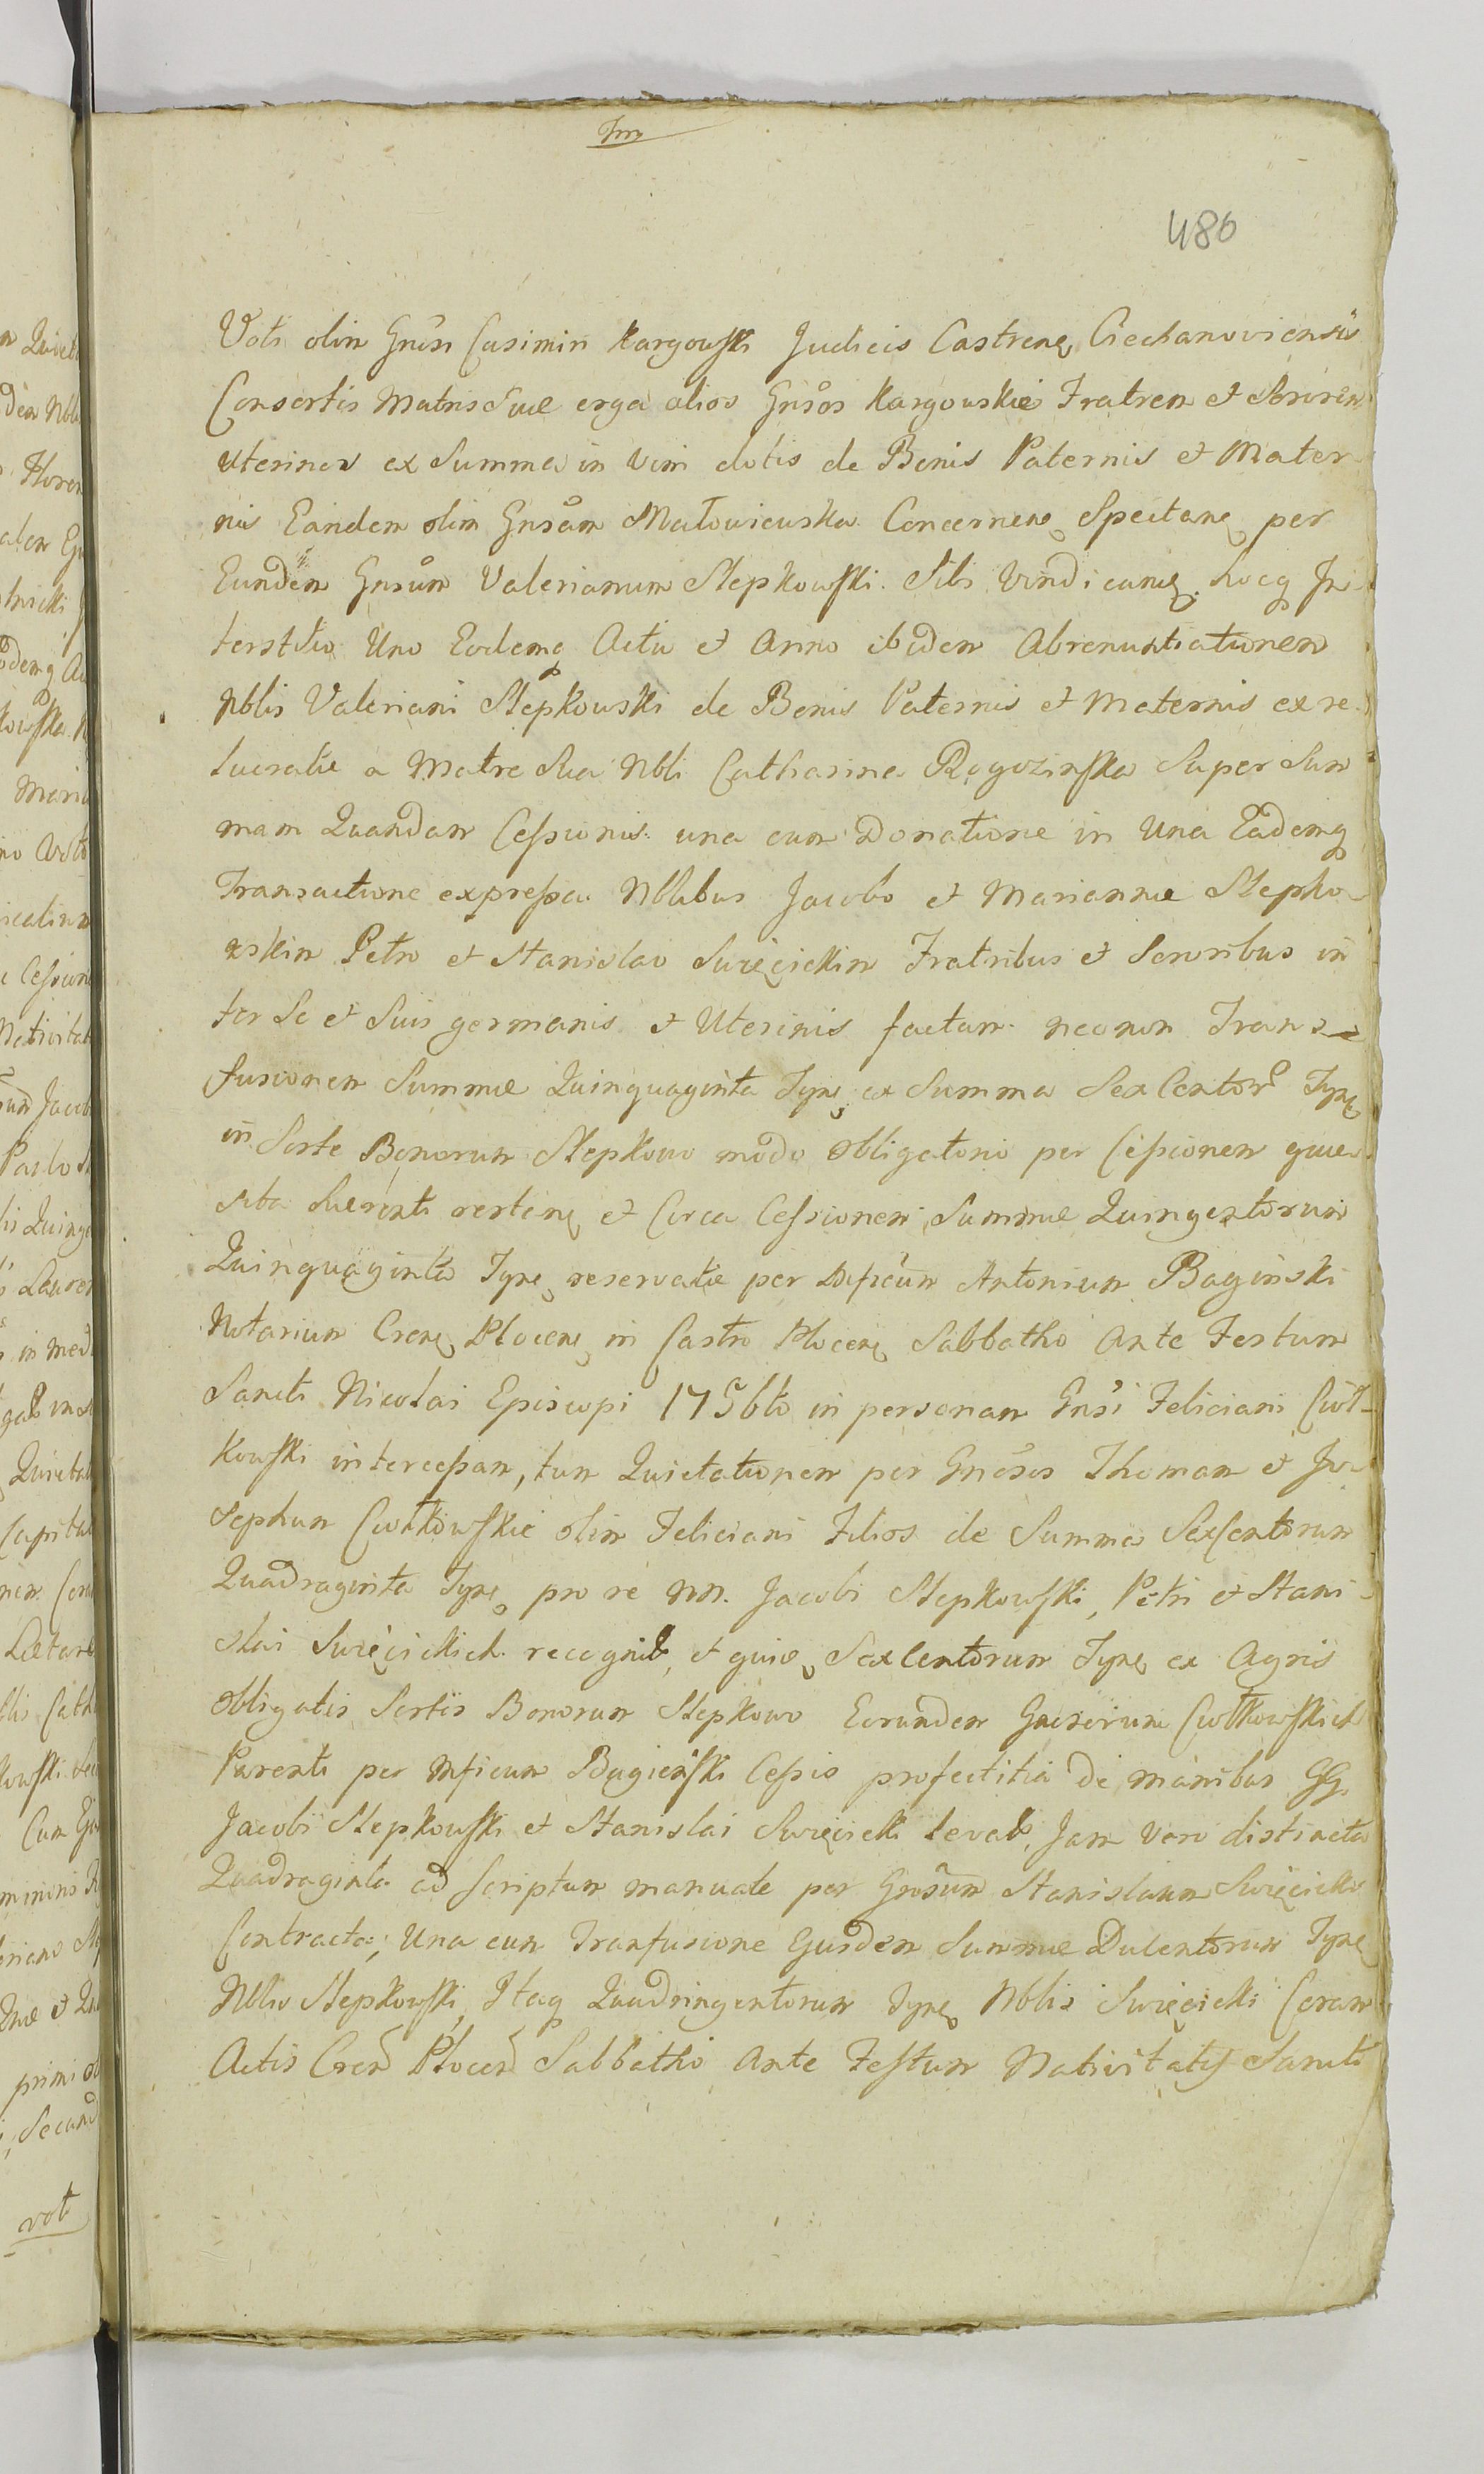 Im
486
Voti olim Gnosi Casimiri Kargowski Judicis Castrens Ciechanoviensis
Consortis Matris Suæ erga alios Gnsos Kargowskie Fratrem et Sororem
uterinos ex Summa in vim dotis de Bonis Paternis et Mater-
nis Eandem olim Gnsam Małowieuska Concernen Spectane per
Eundem Gnsum Valerianum Slepkowski Sibi Vindicane. hocq In-
terstitio Uno Eodemq Actu et Anno ibidem Abrenuntiationem
Nblis Valeriani Slepkowski de Bonis Paternis et Maternis ex re-
lucratæ a Matre Sua Nbli Catharina Rogozinska Super Sum
mam Quandam Cessionis una cum Donatione in Una Eademq
Transactione expressa Nblibus Jacobo et Mariannæ Slepko-
wskim Petro et Stanislao Swięcickim Fratribus et Sororibus in
ter Se et Suis germanis et Uterinis factam necnon Trans-
fusionem Summæ Quinquaginta Tyne ex Summa Sex Centor Tyne
in Sorte Bonorum Slepkowo modo obligatorio per Cessionem quæ
sita Suerenti resteñ et Circa Cessionem Summæ Quingentorum
Quinquaginta Tyne reservatæ per Mficum Antonium Bagiński
Notarium Crens Plocens in Castro Plocens Sabbatho Ante Festum
Sancti Nicolai Episcopi 175bto in personam Gnsi Feliciani Ciół-
kowski intercessam, tum Quietationem per Gnosos Thomam et Jo-
sephum Ciołkowskie olim Feliciani Filios de Summa SexCentorum
Quadraginta Tyne pro re NN. Jacobi Slepkowski, Petri et Stani-
slai Swięcickich recognit, et quidẽ SexCentorum Tyne ex Agris
obligatis Sortis Bonorum Slepkowo Eorundem Gnosorum Ciołkowskich
Parenti per Mficum Bagieński Cessis profectitia de manibus GG.
Jacobi Slepkowski et Stanislai Swięcicki levat, Jam vero distincta
Quadraginta ad Scriptum manuale per Gnosum Stanislaum Swięcicki
Contracta; Una cum Transfusione Ejusdem Summæ Ducentorum Tyne
Nblio Slepkowski, Itaq Quadringentorum Tyne Nblis Swięcicki Coram
Actis Cren Plocen Sabbatho Ante Festum Nativitatis Sancti